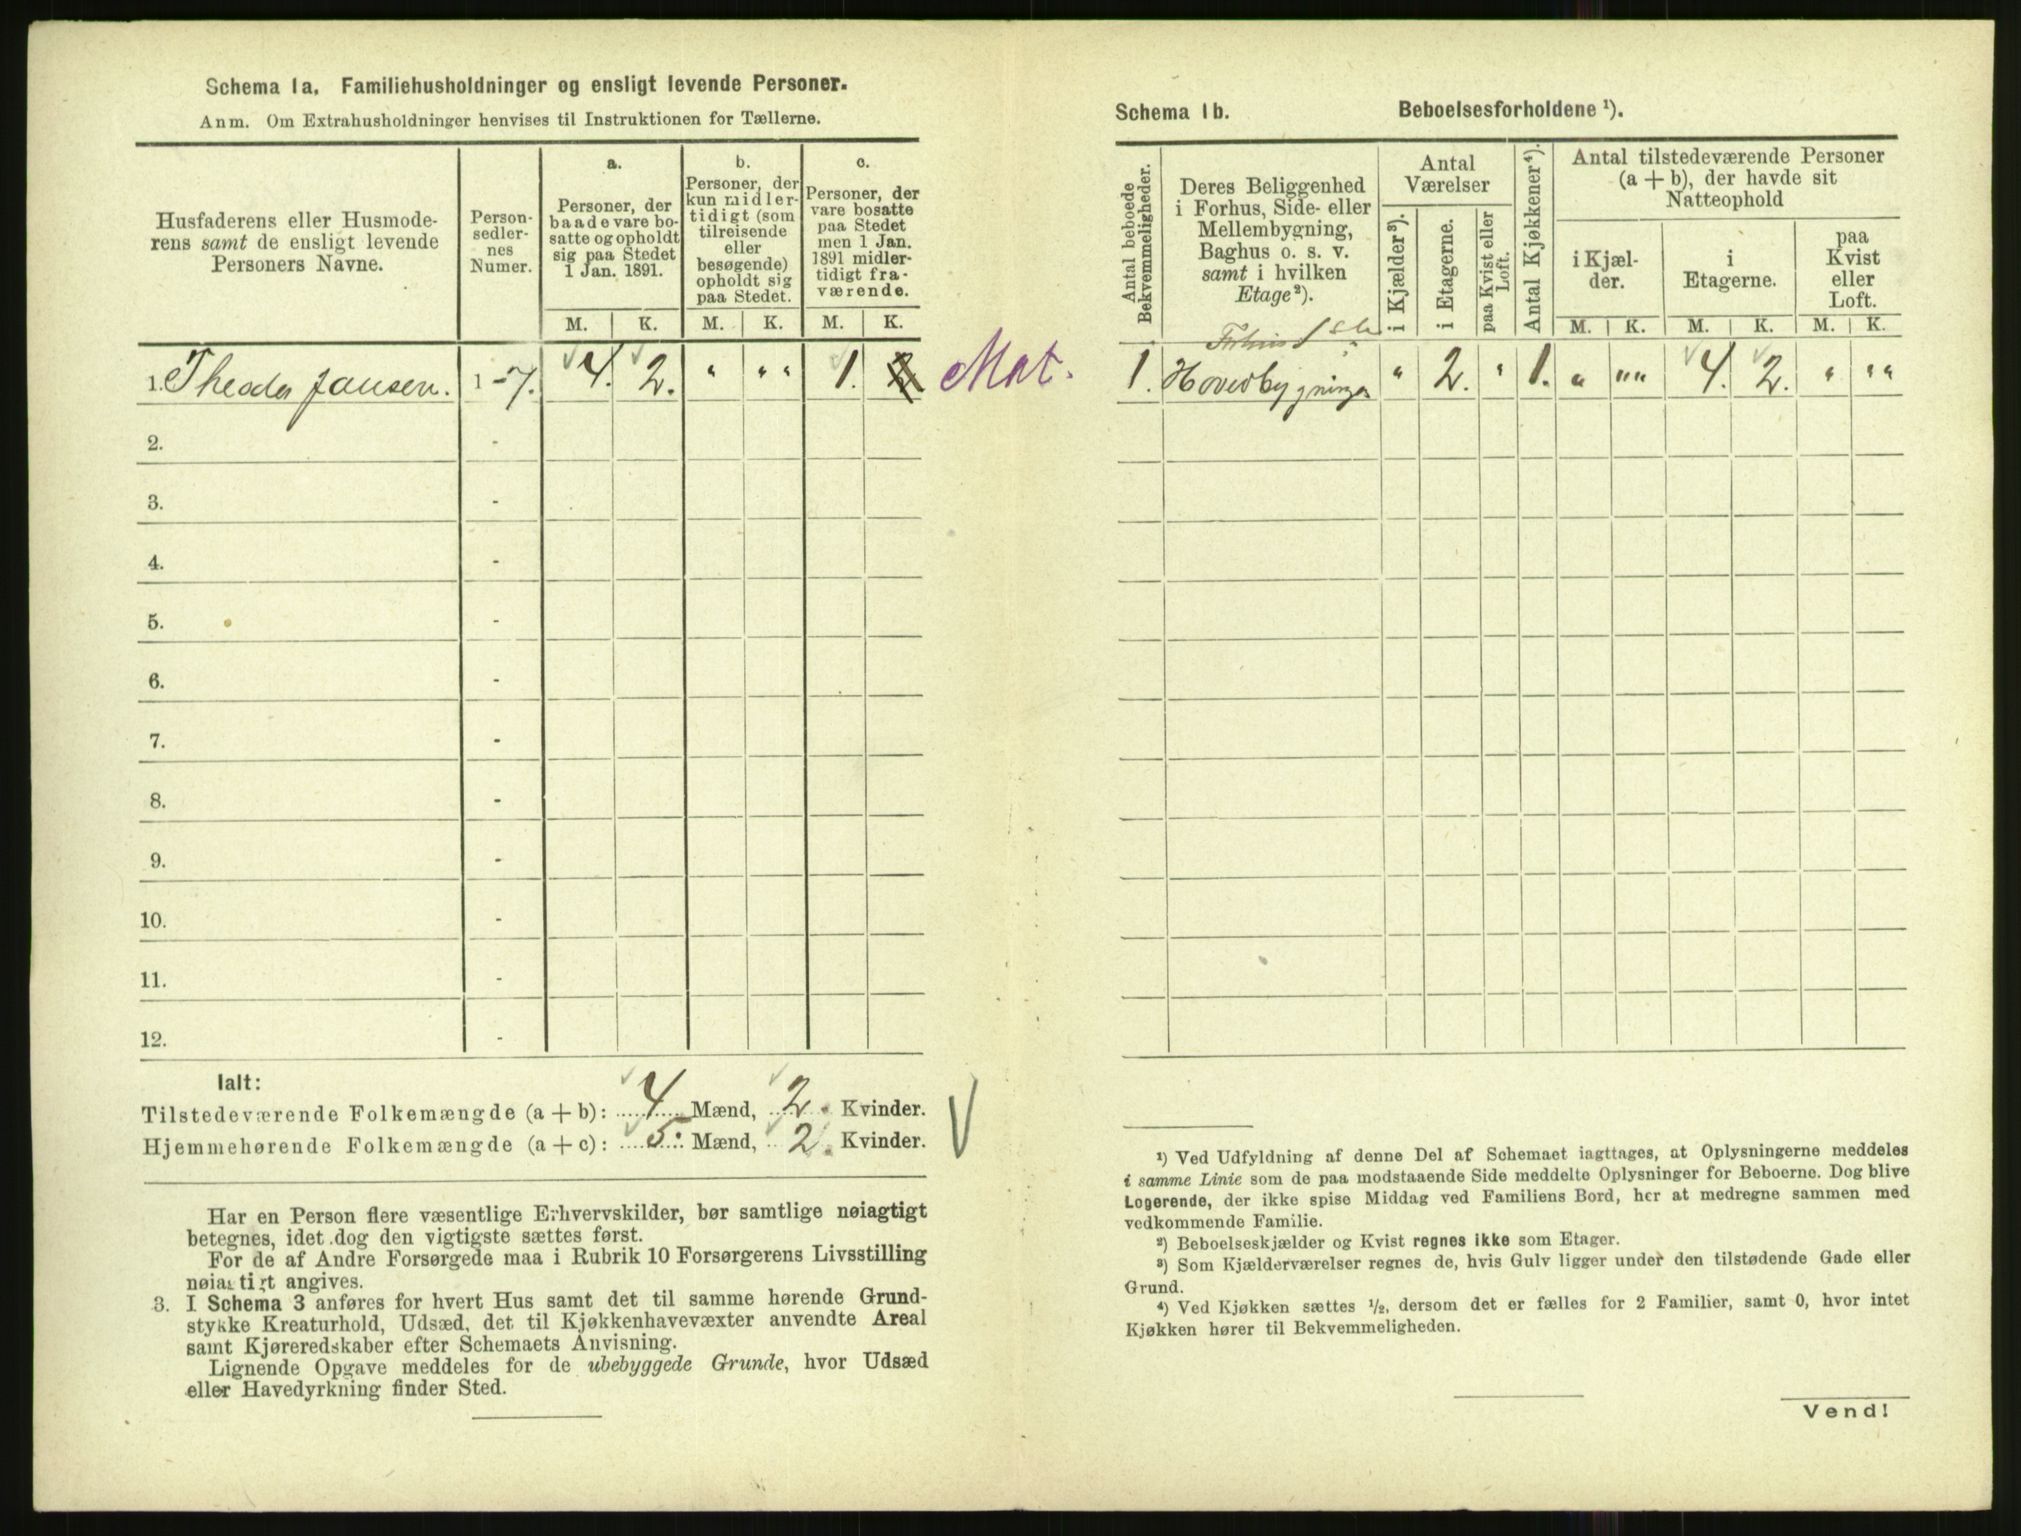 Schema 1a. Familiehusholdninger og ensligt levende Personer.
Anm. Om Extrahusholdninger henvises til Instruktionen for Tællerne.
Husfaderens eller Husmode-
rens samt de ensligt levende
Personers Navne.
Person-
sedler-
nes
Numer.
a.
Personer, der
baade vare bo-
satte og opholdt
sig paa Stedet
1 Jan. 1891.
b.
Personer, der
kun midler-
tidigt (som
tilreisende
eller
besøgende)
opholdt sig
paa Stedet.
c.
Personer, der
vare bosatte
paa Stedet
men 1 Jan.
1891 midler-
tidigt fra-
værende.
M. K. M. K. M. K.
1. Theodor Jansen. 1 - 7. 4. 2. " " " 1. Mat.
2. -
3. -
4. -
5. -
6. -
7. -
8. -
9. -
10. -
11. -
12. -
Ialt:
Tilstedeværende Folkemængde (a + b): 4 Mænd, 2. Kvinder.
Hjemmehørende Folkemængde (a + c): 5. Mænd, 2. Kvinder.
Har en Person flere væsentlige Erhvervskilder, bør samtlige nøiagtigt
betegnes, idet dog den vigtigste sættes først.
For de af Andre Forsørgede maa i Rubrik 10 Forsørgerens Livsstilling
nøiagtigt angives.
3. I Schema 3 anføres for hvert Hus samt det til samme hørende Grund-
stykke Kreaturhold, Udsæd, det til Kjøkkenhavevæxter anvendte Areal
samt Kjøreredskaber efter Schemaets Anvisning.
Lignende Opgave meddeles for de ubebyggede Grunde, hvor Udsæd
eller Havedyrkning finder Sted.
Schema 1b. Beboelsesforholdene ¹).
Antal beboede
Bekvemmeligheder.
Deres Beliggenhed
i Forhus, Side- eller
Mellembygning,
Baghus o. s. v.
samt i hvilken
Etage²).
Antal
Værelser
i Kjælder³).
i Etagerne.
paa Kvist eller
Loft.
Antal Kjøkkener⁴).
Antal tilstedeværende Personer
(a + b), der havde sit
Natteophold
i Kjæl-
der.
i
Etagerne.
paa
Kvist
eller
Loft.
M. K. M. K. M. K.
1. Hovedbygningen " 2. " 1. " "" 4. 2. " " "
¹) Ved Udfyldning af denne Del af Schemaet iagttages, at Oplysningerne meddeles
i samme Linie som de paa modstaaende Side meddelte Oplysninger for Beboerne. Dog blive
Logerende, der ikke spise Middag ved Familiens Bord, her at medregne sammen med
vedkommende Familie.
²) Beboelseskjælder og Kvist regnes ikke som Etager.
³) Som Kjælderværelser regnes de, hvis Gulv ligger under den tilstødende Gade eller
Grund.
⁴) Ved Kjøkken sættes ½, dersom det er fælles for 2 Familier, samt 0, hvor intet
Kjøkken hører til Bekvemmeligheden.
Vend!